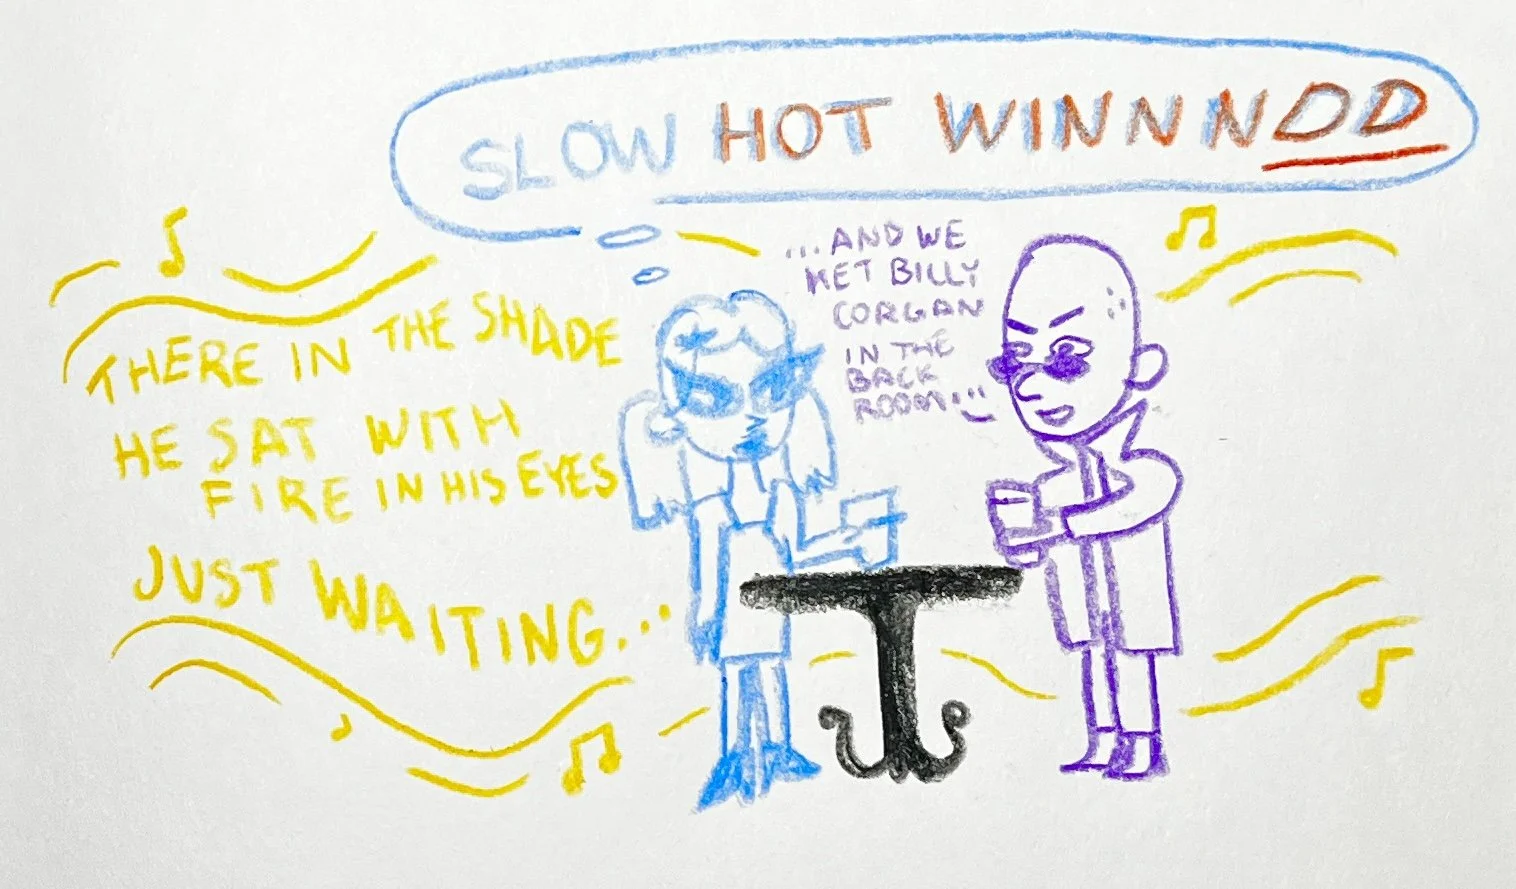 SLOW HOT WINNNDD
...AND WE
MET BILLY
CORGAN
IN THE
BACK
ROOM...
THERE IN THE SHADE
HE SAT WITH
FIRE IN HIS EYES
JUST WAITING...